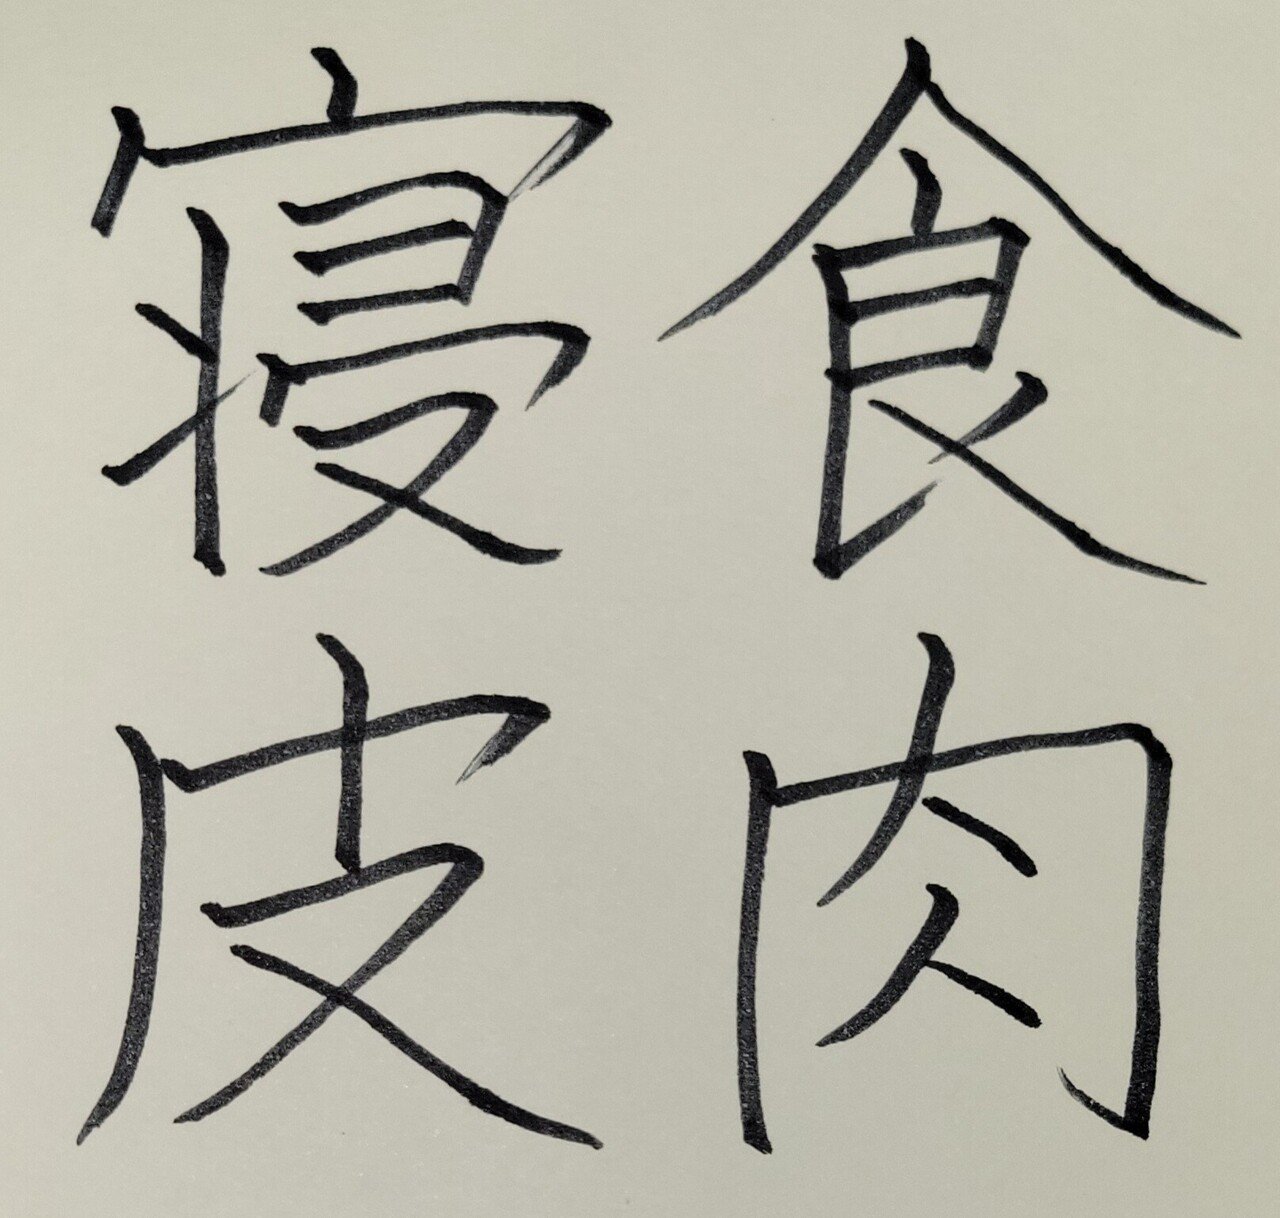 食肉
寝皮